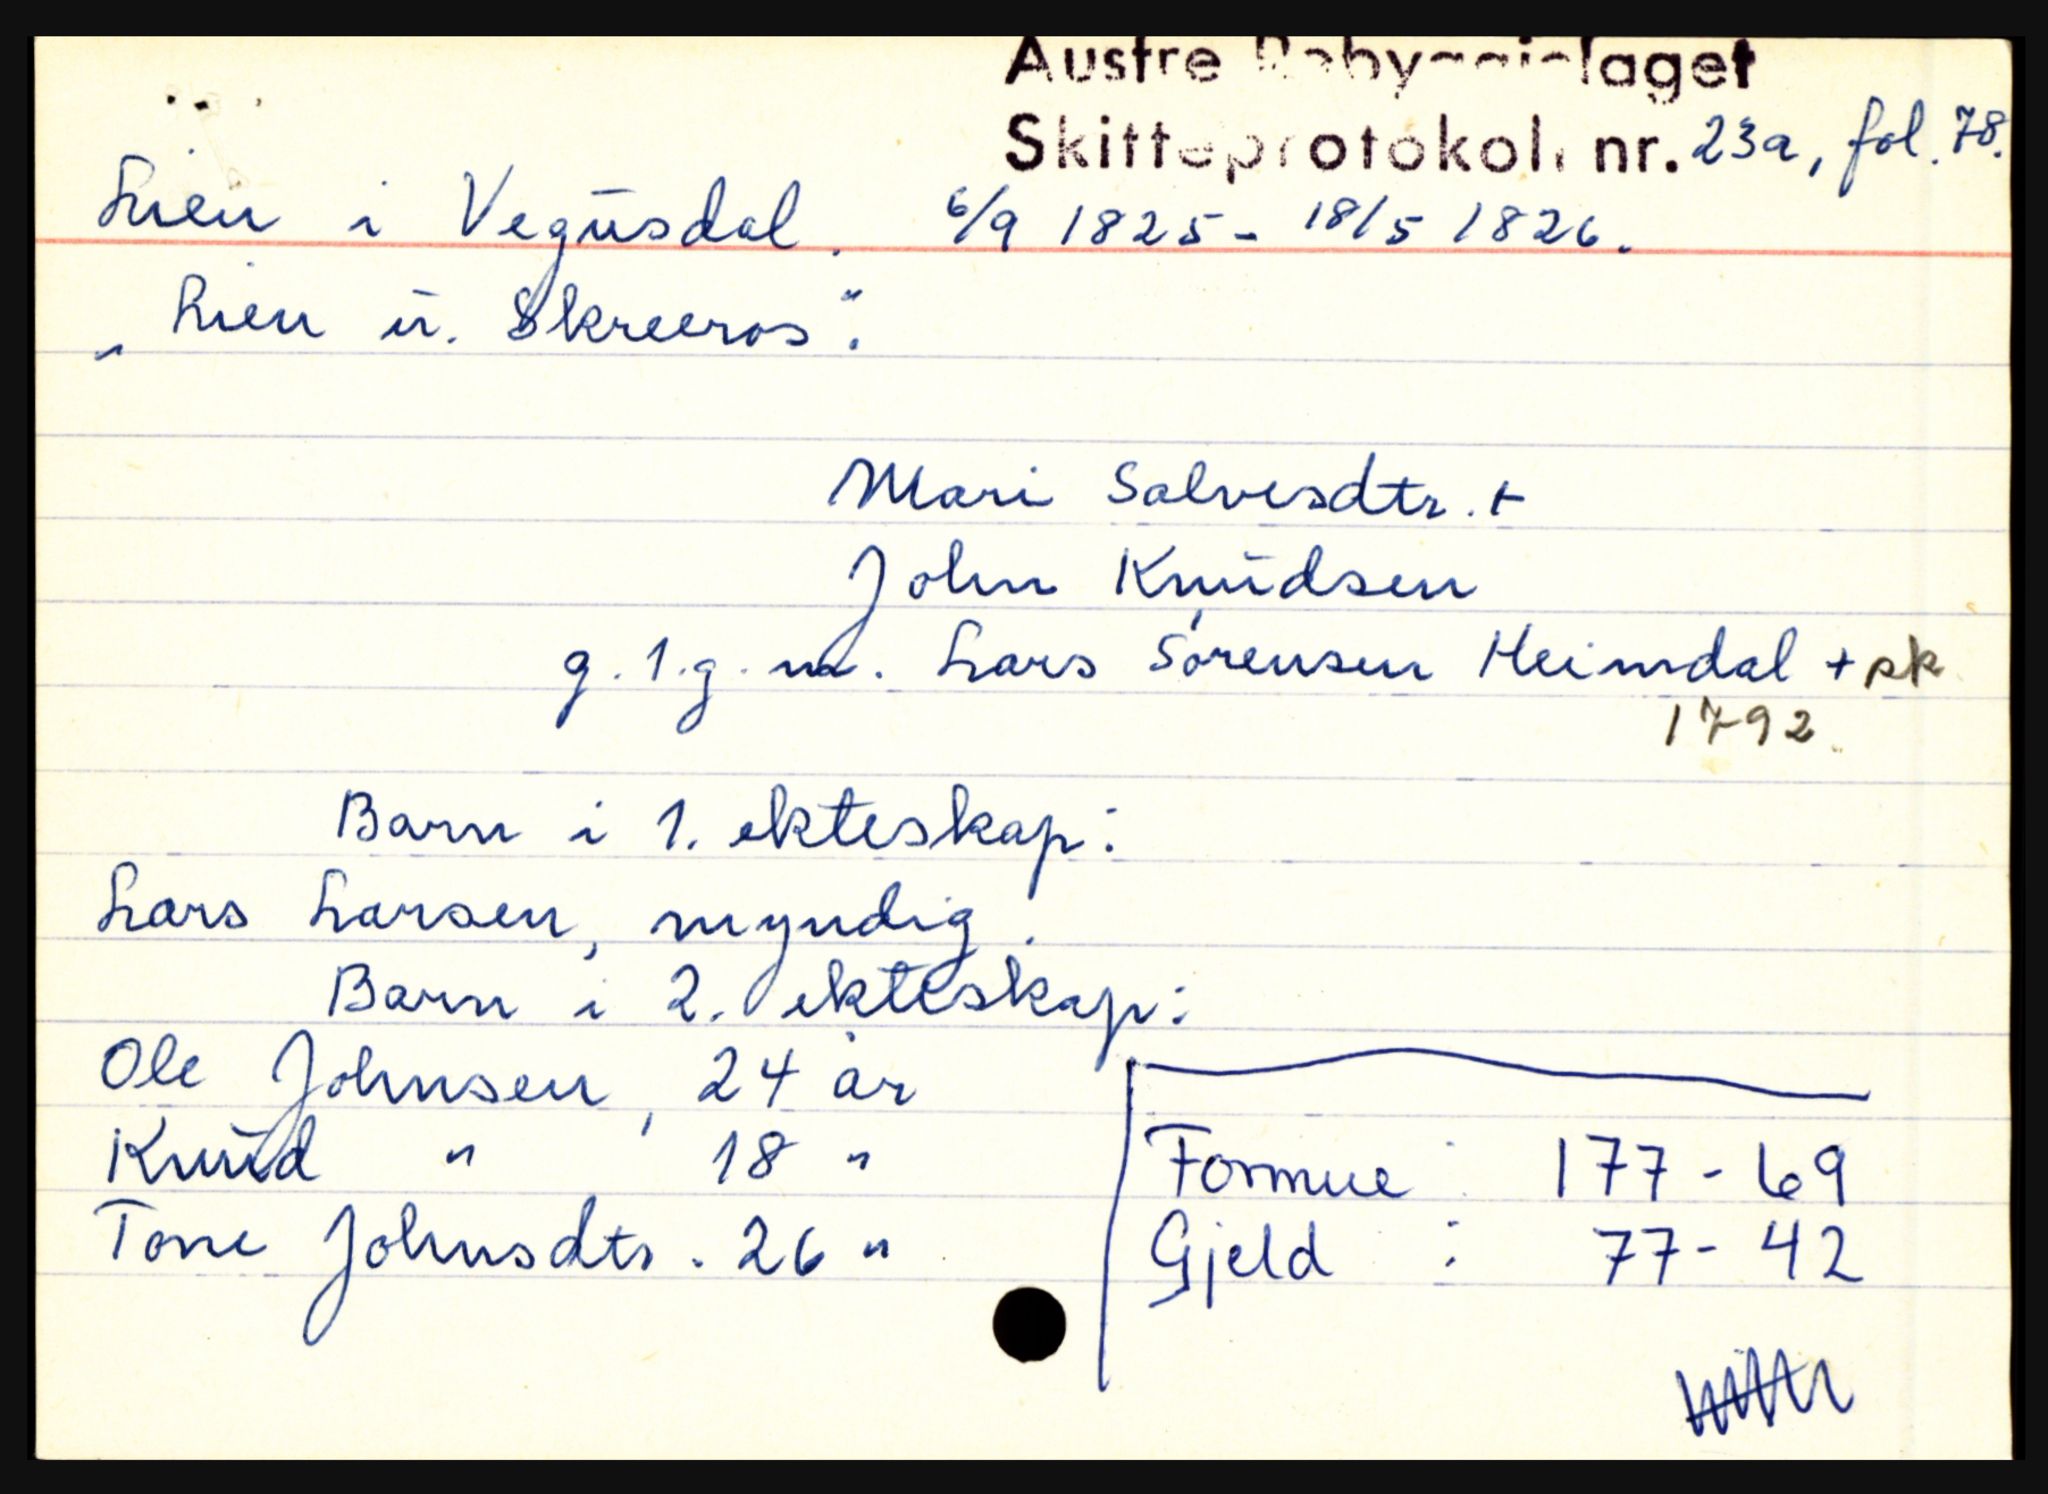 Austre Robyggjelaget
Skifteprotokoll nr. 23a, fol. 78.
Lien i Vegusdal. 6/9 1825 - 18/5 1826.
„Lien u. Skreeros“.
Mari Salvesdtr. +
John Knudsen
g. 1. g. m. Lars Sørensen Heimdal + sk
1792.
Barn i 1. ekteskap:
Lars Larsen, myndig.
Barn i 2. ekteskap:
Ole Johnsen, 24 år
Knud " 18 "
Tone Johnsdtr. 26 "
Formue : 177 - 69
Gjeld : 77 - 42